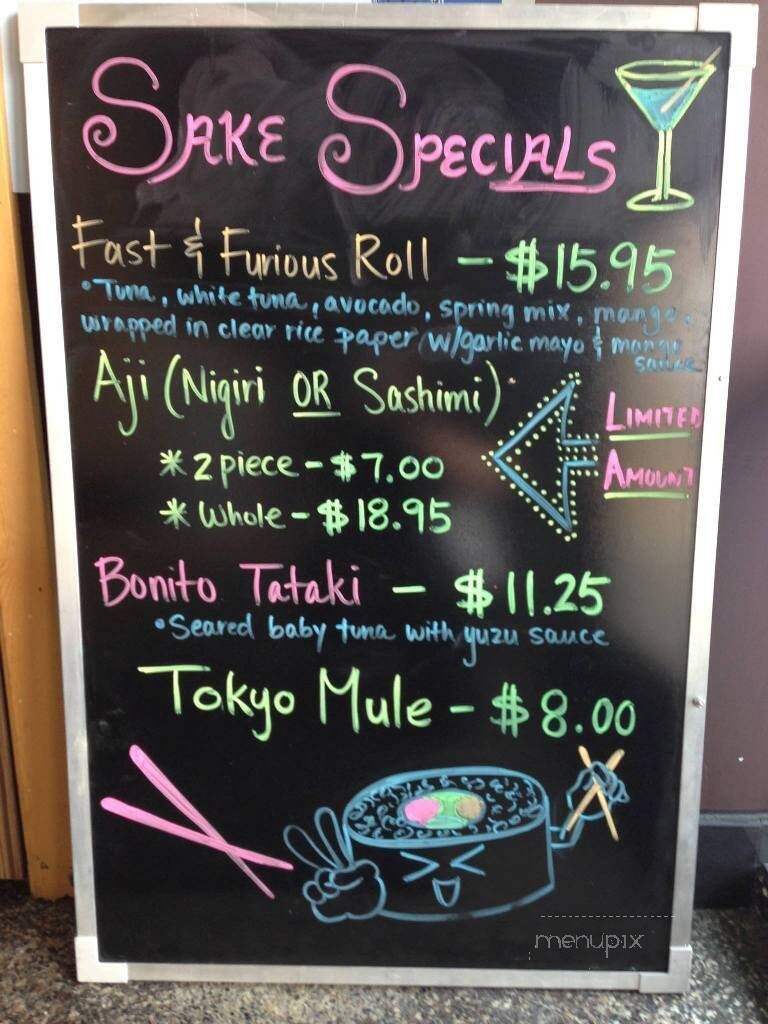 Sake Specials
Fast & Furious Roll - $15.95
• Tuna, white tuna, avocado, spring mix, mango,
wrapped in clear rice paper w/garlic mayo & mango
sauce
Aji (Nigiri OR Sashimi)
Limited
* 2 piece - $7.00
Amount
* Whole - $18.95
Bonito Tataki - $11.25
• Seared baby tuna with yuzu sauce
Tokyo Mule - $8.00
menupix